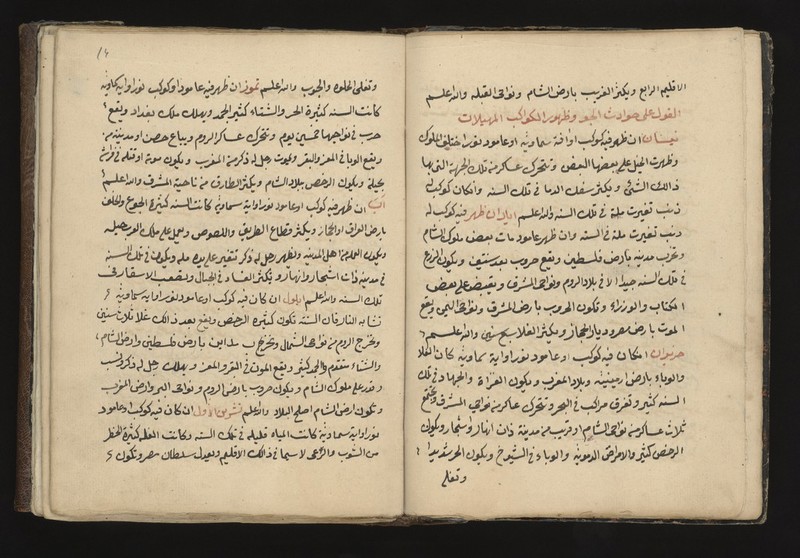 الاقليم الرابع ويكثر الغريب بارض الشام ونواحى القبله والله اعلم
القول على حوادث الجو وظهور الكواكب المهيلات
نيسان ان ظهر فيه كوكب او آفة سماويه او عامود نور اختلف الملوك
وظهرت الحيل على بعضها البعض وتتحرك عساكر من تلك الجهة التى بها
ذالك الشئ ويكثر سفك الدما فى تلك السنه وان كان كوكب له
ذنب تغيرت ملة فى تلك السنه والله اعلم ايار ان ظهر فيه كوكب له
ذنب تغيرت ملة فى السنه وان ظهر عامود مات بعض ملوك الشام
وتخرب مدينه بارض فلسطين وتقع حروب بعد سنتين ويكون الزرع
فى تلك السنه جيدا الا فى بلاد الروم ونواحى المشرق ويقبض على بعض
الكتاب والوزراء وتكون الحروب بارض المشرق ونواحى اليمن ويقع
الموت بارض مصر وديار الحجاز ويكثر الغلا والله اعلم
حزيران ان كان فيه كوكب او عامود نور او اية سماويه كان الغلا
والوباء بارض ارمينيه وبلاد المغرب ويكون الغزاة والجهاد فى تلك
السنه كثير وتغرق مراكب فى البحر وتتحرك عساكر من نواحى المشرق وتجتمع
ثلاث عساكر من نواحى الشام او قريب من مدينة ذات انهار واشجار ويكون
الرخص كثير والامراض الدمويه والوباء فى الشيوخ ويكون الحر شديدا
وتغلى
١٤
وتغلى الحلاوه والحبوب والله اعلم تموز ان ظهر فيه عامود او كوكب نور او اية سماويه
كانت السنه كثيرة الحر والشتاء كثير الجمد ويهلك ملك بغداد ويقع
حرب فى نواحيها خمسين يوم وتتحرك عساكر الروم ويباع حصن او مدينه من
ويقع الوبا فى المعز والبقر ويموت رجل له ذكر من المغرب ويكون موته او قتله فى
ويكون الرخص ببلاد الشام ويكثر الطارق من ناحية المشرق والله اعلم
اب ان ظهر فيه كوكب او عامود نور او اية سماويه كانت السنه كثيرة الجوع والخلف
بارض العراق والحجاز ويكثر قطاع الطريق واللصوص ويعمل على ملك العرب حيله
ويكون العمله من اهل المدينه ويظهر رجل له ذكر تتغير على يده مله ويكون فى تلك السنه
فى مدينه ذات اشجار وانهار ويكثر الفساد فى الجبال ويصعب الاسفار فى
تلك السنه والله اعلم ايلول ان كان فيه كوكب او عامود نور او اية سماويه
تشابه النار فان السنه تكون كثيرة الرخص ويقع بعد ذالك غلا ثلاث سنين
وتخرج الروم من نواحى الشمال وتخرب مداين بارض فلسطين وارض الشام
والشتاء متقدم والجمد كثير ويقع الموت فى البقر والمعز ويهلك رجل له ذكر ونسب
وغدر على ملوك الشام ويكون حروب بارض الروم ونواحى البر وارض المغرب
وتكون ارض الشام اصلح البلاد والله اعلم تشرين الاول ان كان فيه كوكب او عامود
نور او اية سماويه كانت المياه قليله فى تلك السنه وكانت الغله كثيرة الحفظ
من السوس والرعى لاسيما فى ذالك الاقليم ويعدل سلطان مصر وتكون